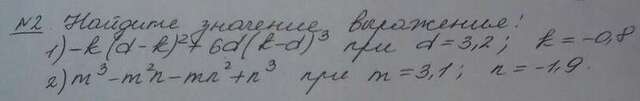 №2. Найдите значение выражения:
1) -k(d-k)²+6d(k-d)³ при d=3,2; k=-0,8
2) m³-m²n-mn²+n³ при m=3,1; n=-1,9.